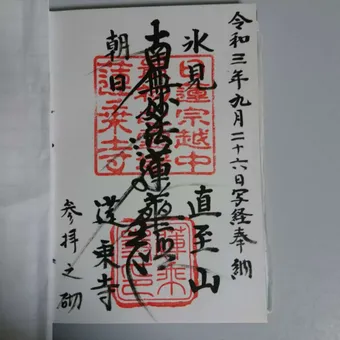 令和三年九月二十六日写経奉納
氷見　直至山
南無妙法蓮華経
朝日　蓮乗寺
参拝之砌
日蓮宗越中
蓮乗寺